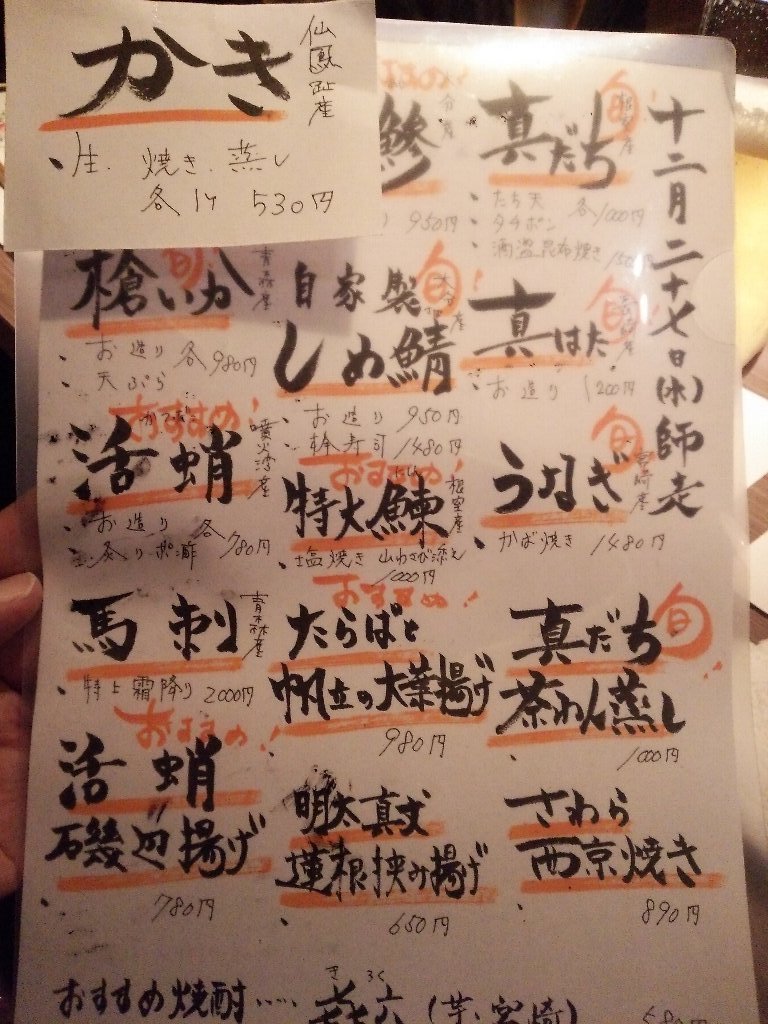 十二月二十七日(水)師走
かき
仙鳳趾産
・生・焼き・蒸し
各1ケ 530円
真だち
旬
・たち天 各1000円
・タチポン
・酒盗昆布焼き
おすすめ!
鯵
950円
槍いか
旬
青森産
・お造り 各980円
・天ぷら
自家製
しめ鯖
旬!
・お造り 950円
・棒寿司 1480円
真はた
旬
・お造り 1200円
おすすめ!
活蛸
噴火湾産
・お造り 各780円
おすすめ!
特大鰊
根室産
・塩焼き 山わさび添え
1000円
うなぎ
旬
宮崎産
・かば焼き 1480円
馬刺
青森産
・特上霜降り 2000円
おすすめ!
たらばと
帆立の大葉揚げ
980円
真だち
旬!
茶わん蒸し
1000円
おすすめ!
活蛸
磯辺揚げ
780円
明太真丈
蓮根挟み揚げ
650円
さわら
西京焼き
890円
おすすめ焼酎……
きろく
㐂六(芋・宮崎)